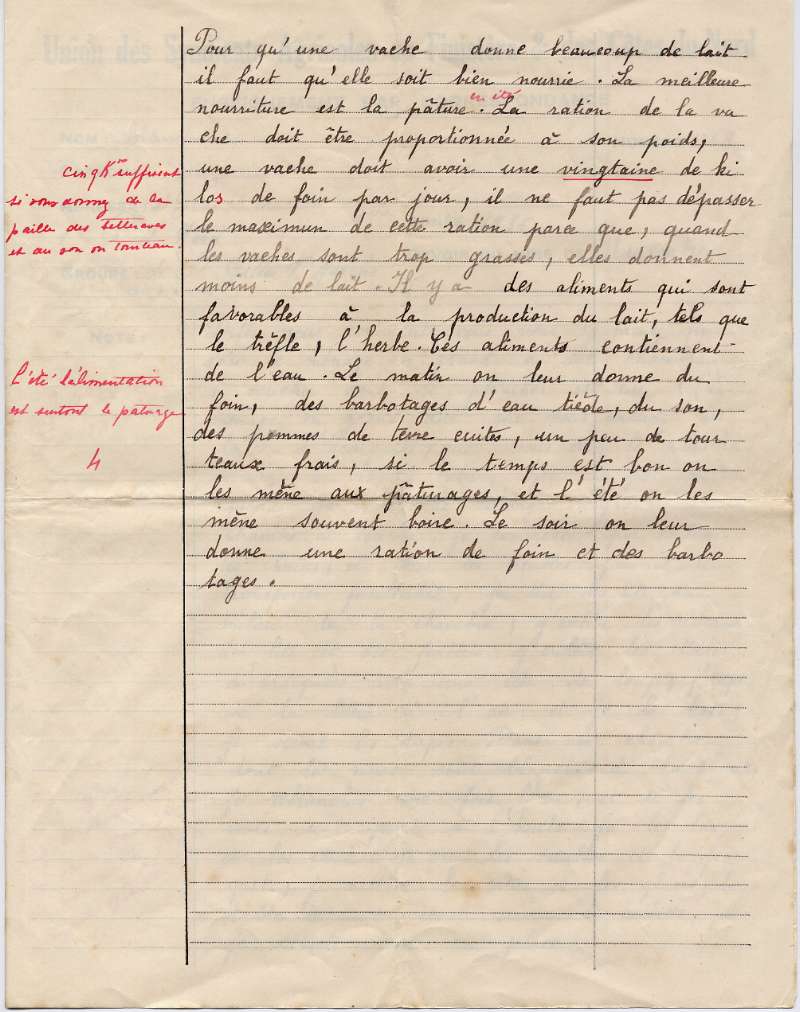 Pour qu'une vache donne beaucoup de lait
il faut qu'elle soit bien nourrie. La meilleure
en été
nourriture est la pâture. La ration de la va
che doit être proportionnée à son poids,
une vache doit avoir une vingtaine de ki
los de foin par jour, il ne faut pas dépasser
le maximun de cette ration parce que, quand
les vaches sont trop grasses, elles donnent
moins de lait. Il y a des aliments qui sont
favorables à la production du lait, tels que
le trêfle, l'herbe. Ces aliments contiennent
de l'eau. Le matin on leur donne du
foin, des barbotages d'eau tiède, du son,
des pommes de terre cuites, un peu de tour
teaux frais, si le temps est bon on
les mène aux pâturages, et l'été on les
mène souvent boire. Le soir on leur
donne une ration de foin et des barbo
tages.
cinq K suffisent
si vous donnez de la
paille des betteraves
et du son ou tourteau.
L'été l'alimentation
est surtout le paturage
4
Union des